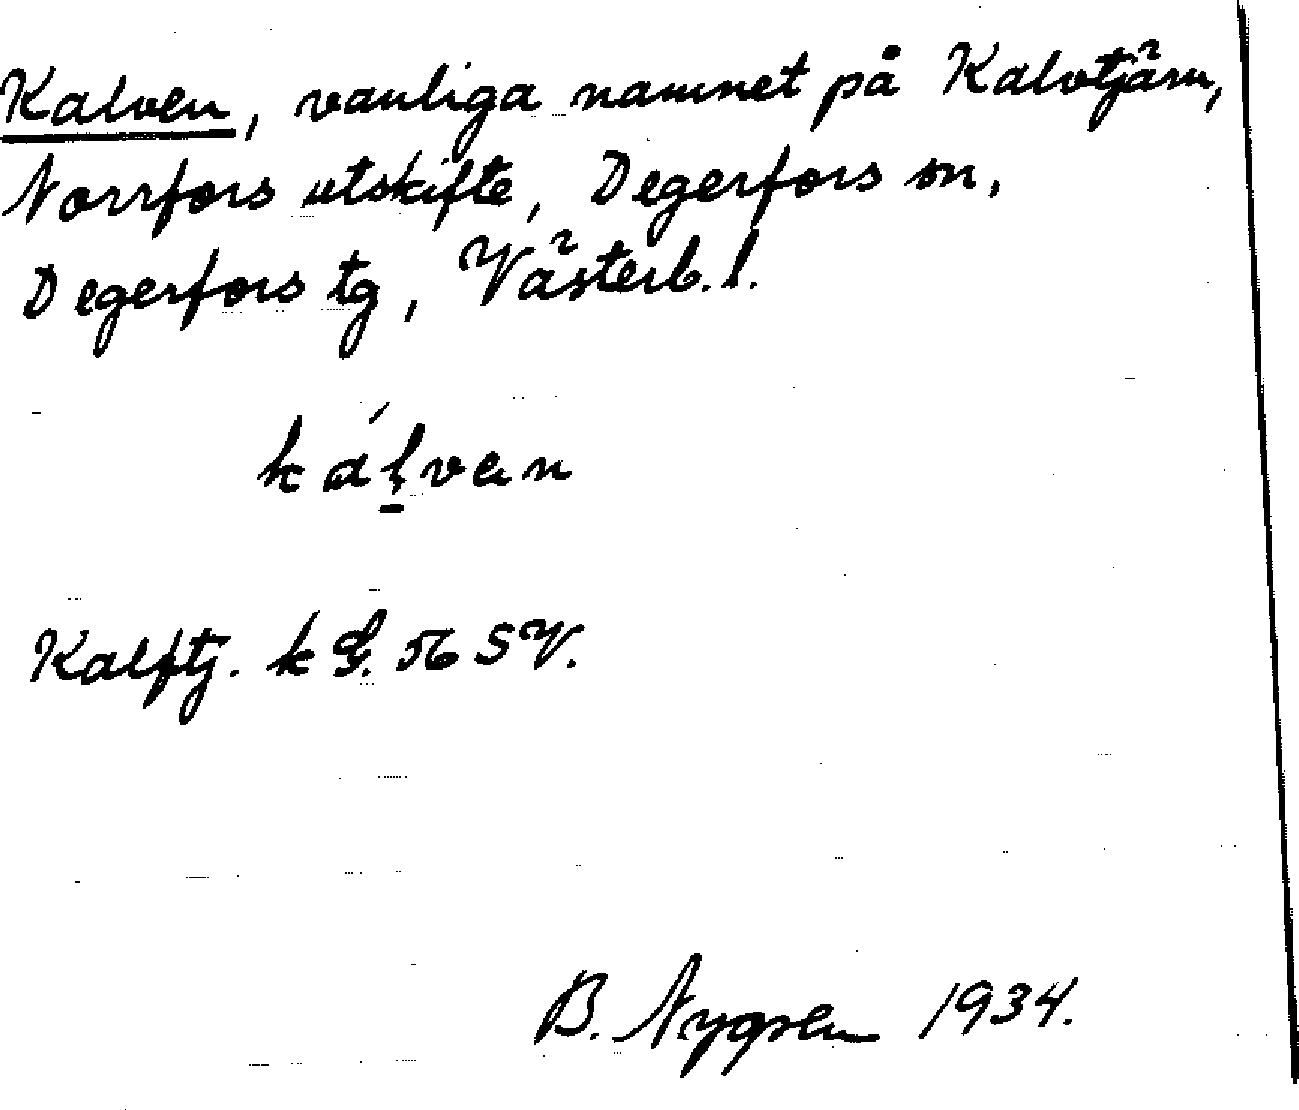 Kalven, vanliga namnet på Kalvtjärn,
Norrfors utskifte, Degerfors sn,
Degerfors tg, Västerb. l.
kálven
Kalftj. k G. 56 SV.
B. Nygren 1934.